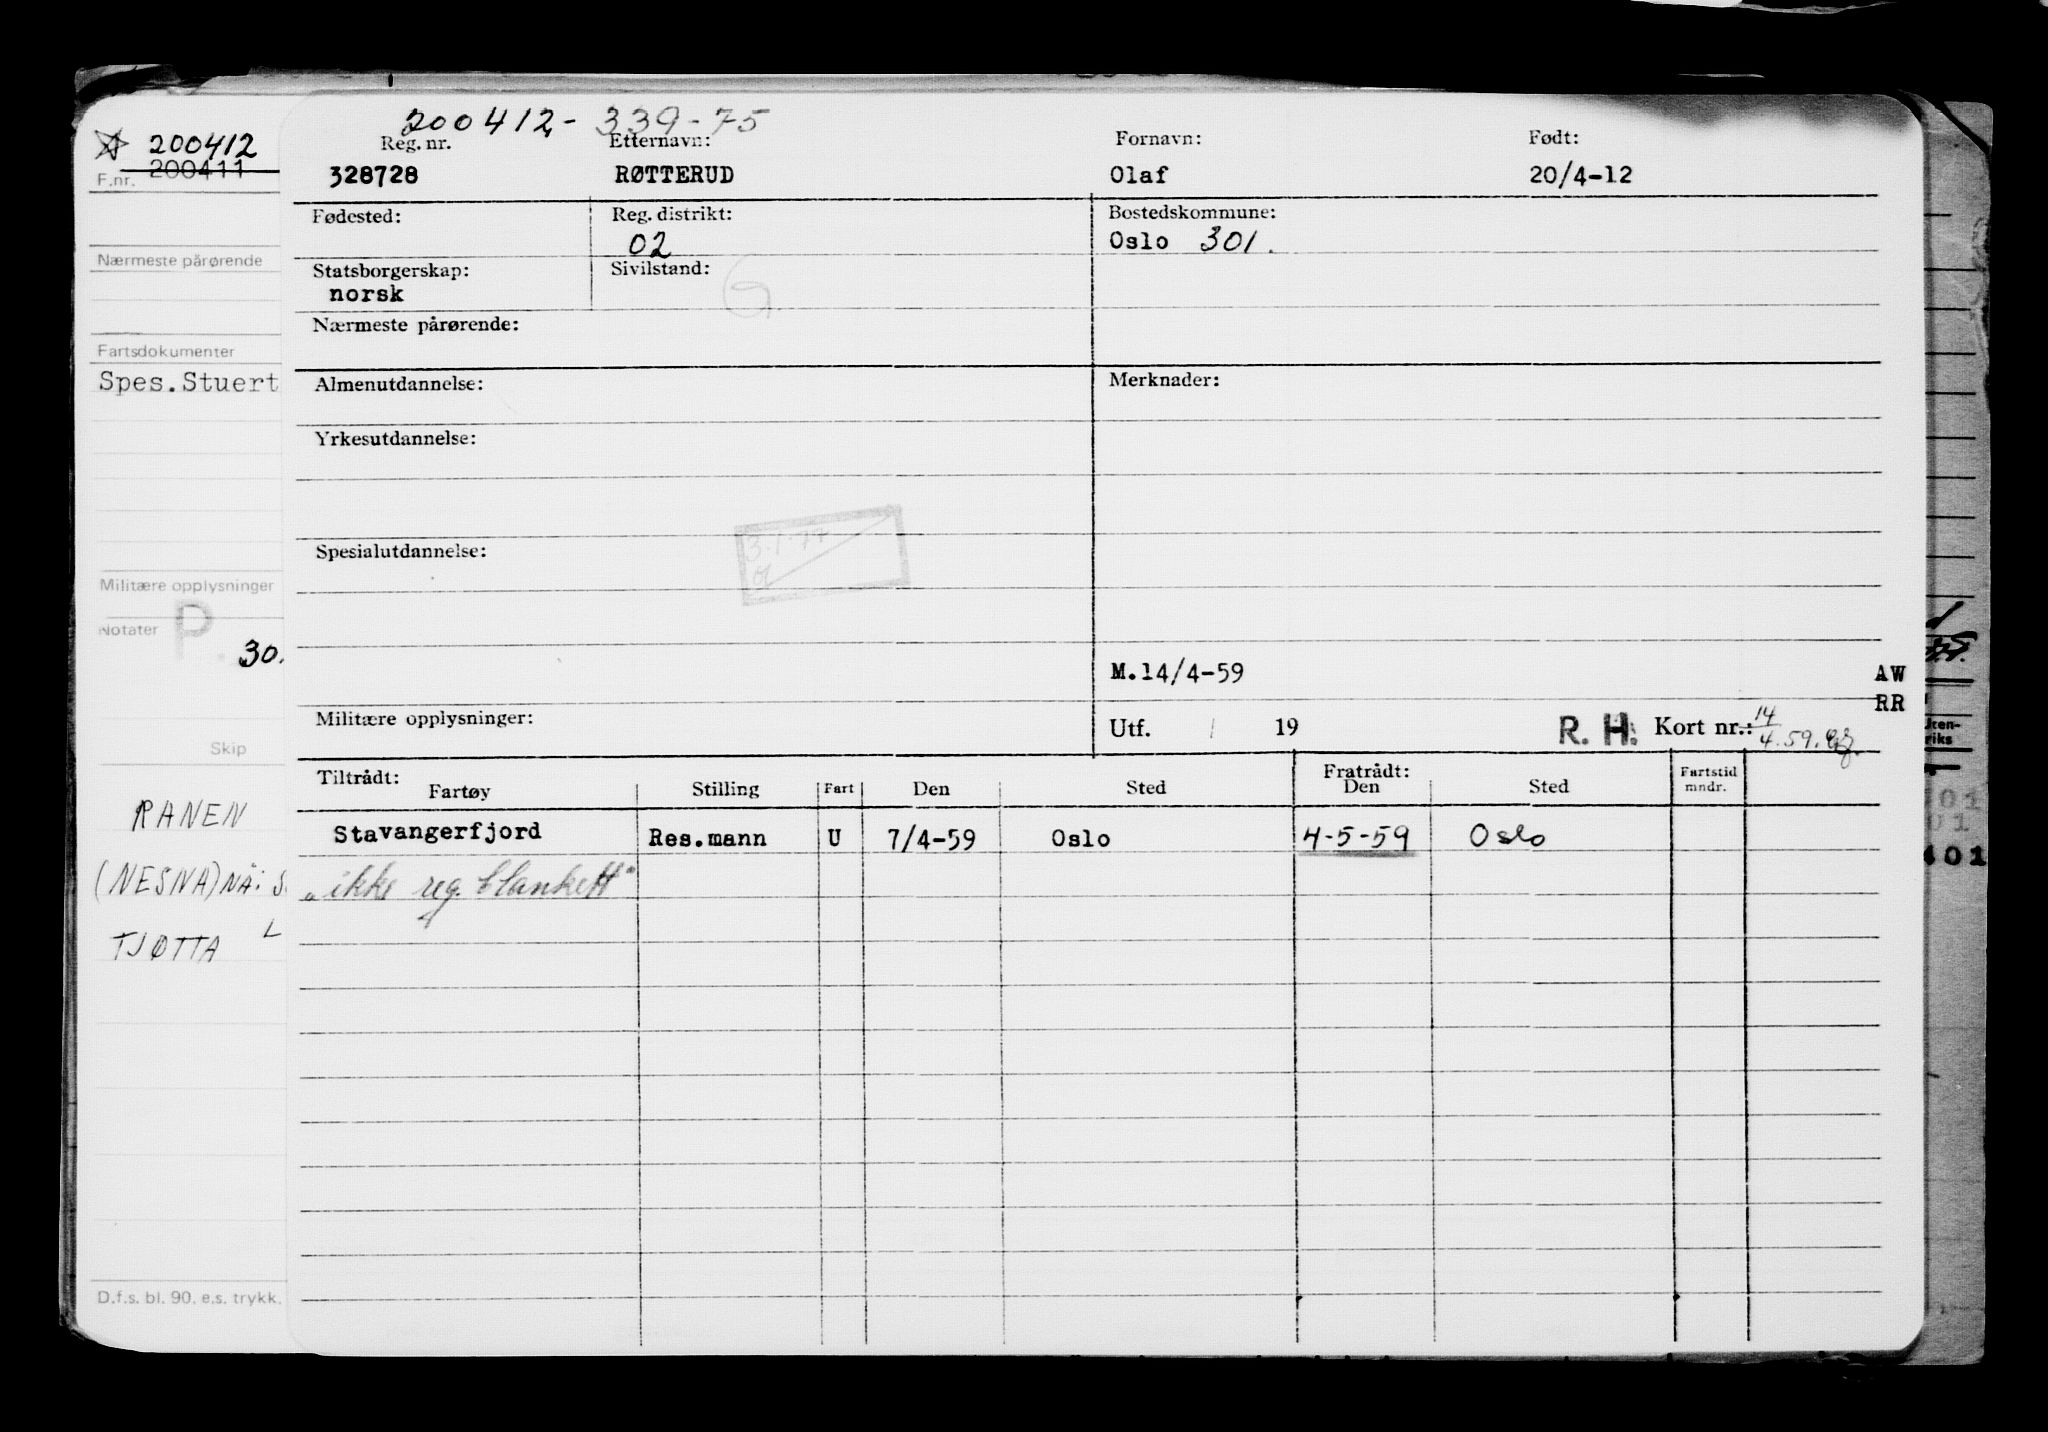 200412
200411
F.nr.
Nærmeste pårørende
Fartsdokumenter
Spes.Stuert
Militære opplysninger
P.
Notater
30.
Skip
RANEN
(NESNA) NÅ: S
TJØTTA L
D.f.s. bl. 90. e.s. trykk.
200412- 339-75
Reg. nr. Etternavn: Fornavn: Født:
328728 RØTTERUD Olaf 20/4-12
Fødested: Reg. distrikt: Bostedskommune:
02 Oslo 301.
Statsborgerskap: Sivilstand:
norsk G
Nærmeste pårørende:
Almenutdannelse: Merknader:
Yrkesutdannelse:
3.1.77
Spesialutdannelse:
M.14/4-59 AW
RR
Militære opplysninger: Utf. / 19 R. H. Kort nr.: 14/4.59.
Tiltrådt: Fratrådt:
Fartøy Stilling Fart Den Sted Den Sted Fartstid mndr.
Stavangerfjord Res.mann U 7/4-59 Oslo 4-5-59 Oslo
"ikke reg. blankett"
iks
01
01
401